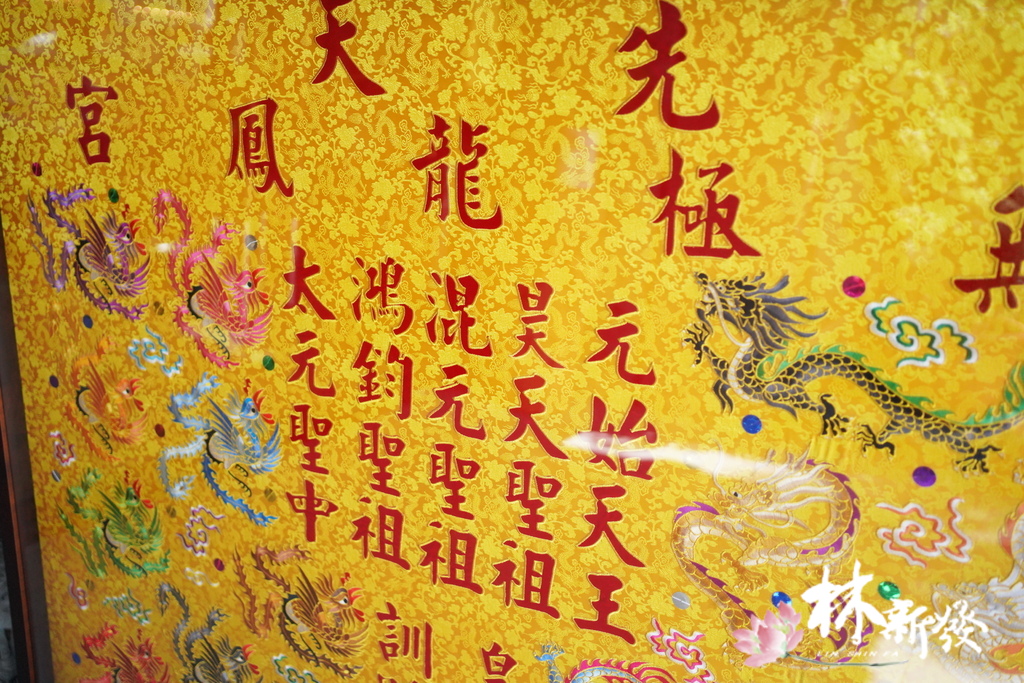 先極
天
龍鳳宮
元始天王
昊天聖祖
混元聖祖
鴻鈞聖祖
太元聖中
訓
林新發
LIN SHIN FA